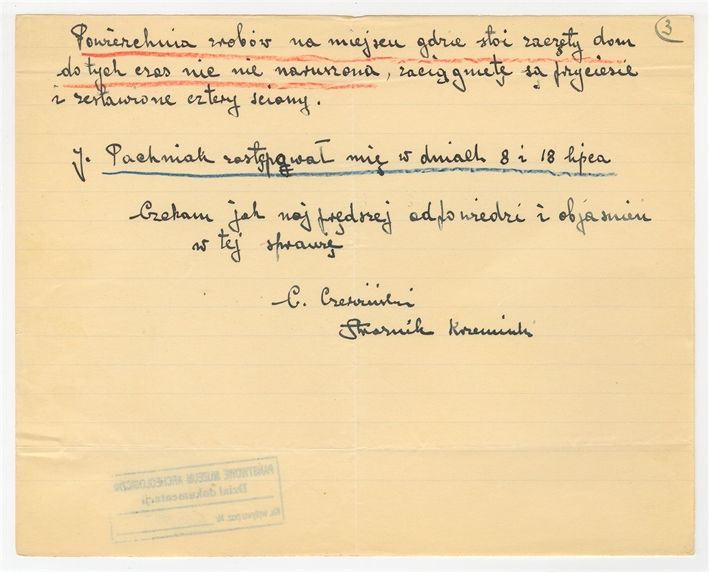 3
Powierzchnia zrobów na miejscu gdzie stoi zaczęty dom
do tych czas nie nie naruszona, zaciągniętę są pryciesie
i zestawione cztery ściany.
J. Pachniak zastępował mię w dniach 8 i 18 lipca
Czekam jak naj prędszej odpowiedzi i objaśnień
w tej sprawię
C. Czerwiński
Strażnik Krzemionk
PAŃSTWOWE MUZEUM ARCHEOLOGICZNE
Dział dokumentacji
Ks. wpływu poz. Nr.